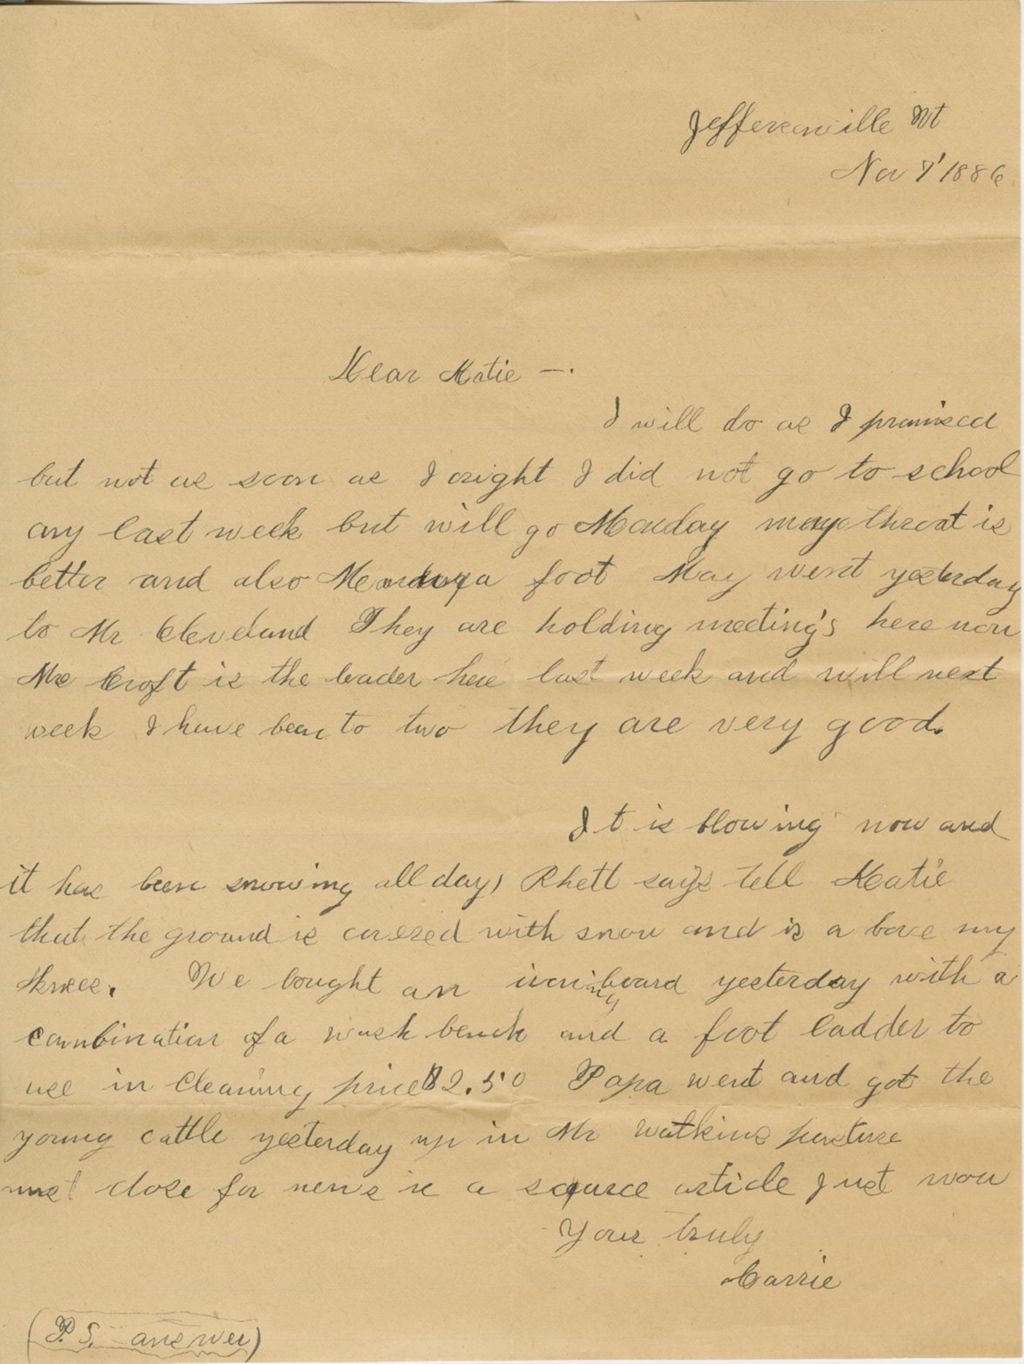 Jeffersonville Vt
Nov 7' 1886
Dear Katie —.
I will do as I promised
but not as soon as I might I did not go to school
any last week but will go Monday my throat is
better and also foot May went yesterday
to Mr Cleveland They are holding meeting's here now
Mr Croft is the leader here last week and will next
week I have bean to two they are very good.
It is blowing now and
it has been snowing all day, Rhett says tell Katie
that the ground is covered with snow and is a bove my
knees. We bought an board yesterday with a
combination of a wash bench and a foot ladder to
use in cleaning price $2.50 Papa went and got the
young cattle yesterday up in Mr Watkins pasture
must close for news is a scource article Just now
Your truly
Carrie
(P.S. answer)